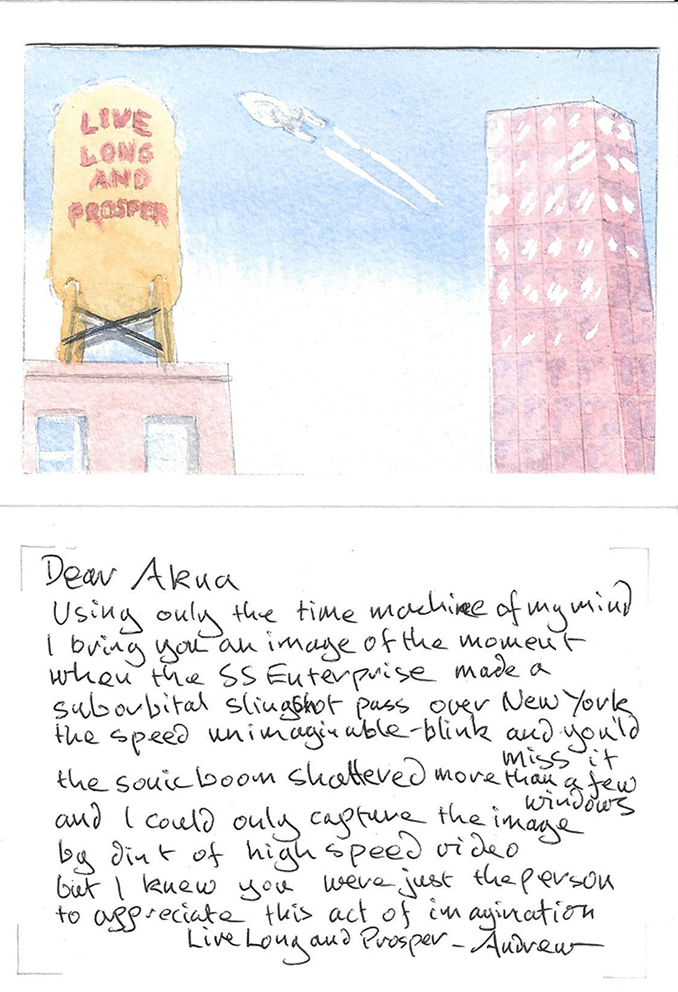 LIVE
LONG
AND
PROSPER
Dear Akua
Using only the time machine of my mind
I bring you an image of the moment
when the SS Enterprise made a
suborbital slingshot pass over New York
the speed unimaginable-blink and you'ld
miss it
the sonic boom shattered more than a few
windows
and I could only capture the image
by dint of high speed video
but I knew you were just the person
to appreciate this act of imagination
Live Long and Prosper - Andrew